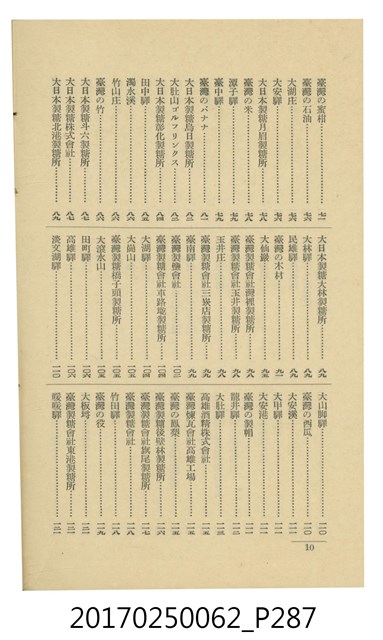 臺灣の蜜柑……七一
臺灣の石油……七六
大湖庄……七六
大安驛……七七
大日本製糖月眉製糖所……七八
臺灣の米……七八
潭子驛……七九
臺中驛……七九
臺灣のバナナ……八一
大日本製糖烏日製糖所……八二
大肚山ゴルフリンクス……八三
大日本製糖彰化製糖所……八四
田中驛……八六
濁水溪……八六
竹山庄……八六
臺灣の竹……八六
大日本製糖斗六製糖所……八八
大日本製糖株式會社……八九
大日本製糖北港製糖所……八九
大日本製糖大林製糖所……八九
大林驛……八九
民雄驛……九〇
臺灣の木材……九一
大仙巖……九七
臺灣製糖會社灣裡製糖所……九八
臺灣製糖會社玉井製糖所……九八
玉井庄……九八
臺灣製糖會社三崁店製糖所……九九
臺南驛……九九
臺灣製鹽會社……一〇三
臺灣製糖會社車路墘製糖所……一〇四
大湖驛……一〇四
大崗山……一〇五
臺灣製糖橋子頭製糖所……一〇五
大滾水山……一〇五
田町驛……一〇六
高雄驛……一〇六
淡文湖驛……一一〇
大山脚驛……一一〇
臺灣の西瓜……一一〇
大安溪……一一一
大甲驛……一一一
大安港……一一一
臺灣の製帽……一一一
龍井驛……一一二
大肚驛……一一三
高雄酒精株式會社……一一五
臺灣煉瓦會社高雄工場……一一五
臺灣の鳳梨……一一五
臺灣製糖後壁林製糖所……一一六
臺灣製糖會社旗尾製糖所……一一七
臺灣製糖會社……一一八
竹田驛……一一八
臺灣の役……一一九
大板埒……一二一
臺灣製糖會社東港製糖所……一二一
暖暖驛……一二一
10
20170250062_P287